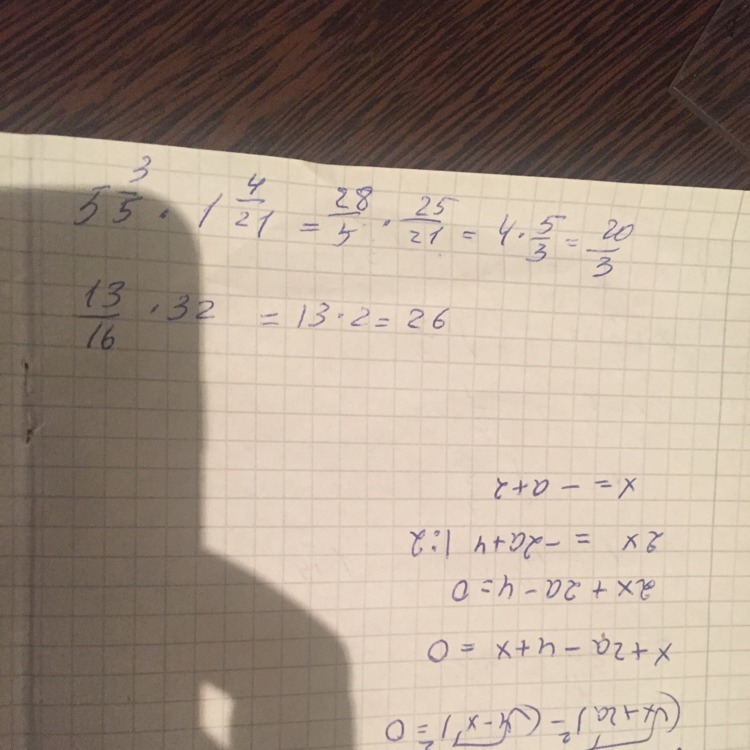 5 3/5 · 1 4/21 = 28/5 · 25/21 = 4 · 5/3 = 20/3
13/16 · 32 = 13 · 2 = 26
(√x+2a)² − (√4−x)² = 0
x + 2a − 4 + x = 0
2x + 2a − 4 = 0
2x = −2a+4 |:2
x = − a+2